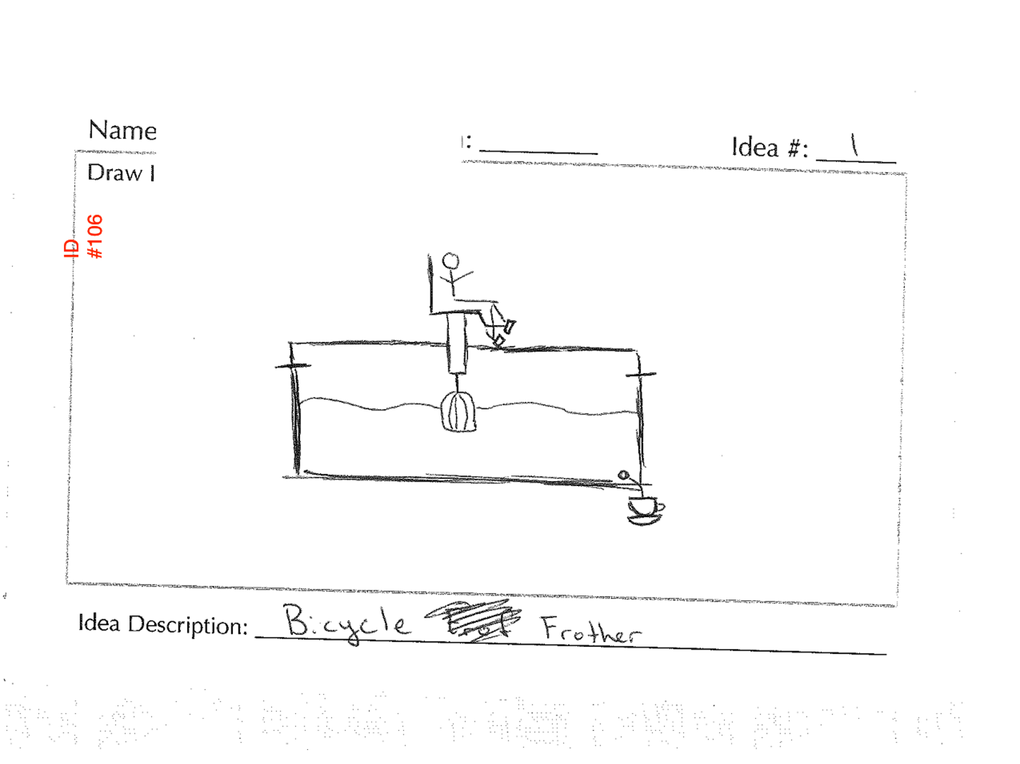 Name
: Idea #: 1
Draw I
ID
#106
Idea Description: Bicycle Frother